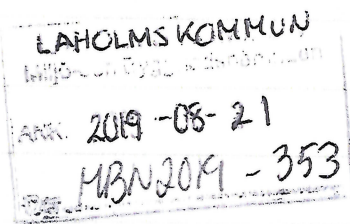 LAHOLMS KOMMUN
ANK. 2019 -08- 21
MBN2019 - 353